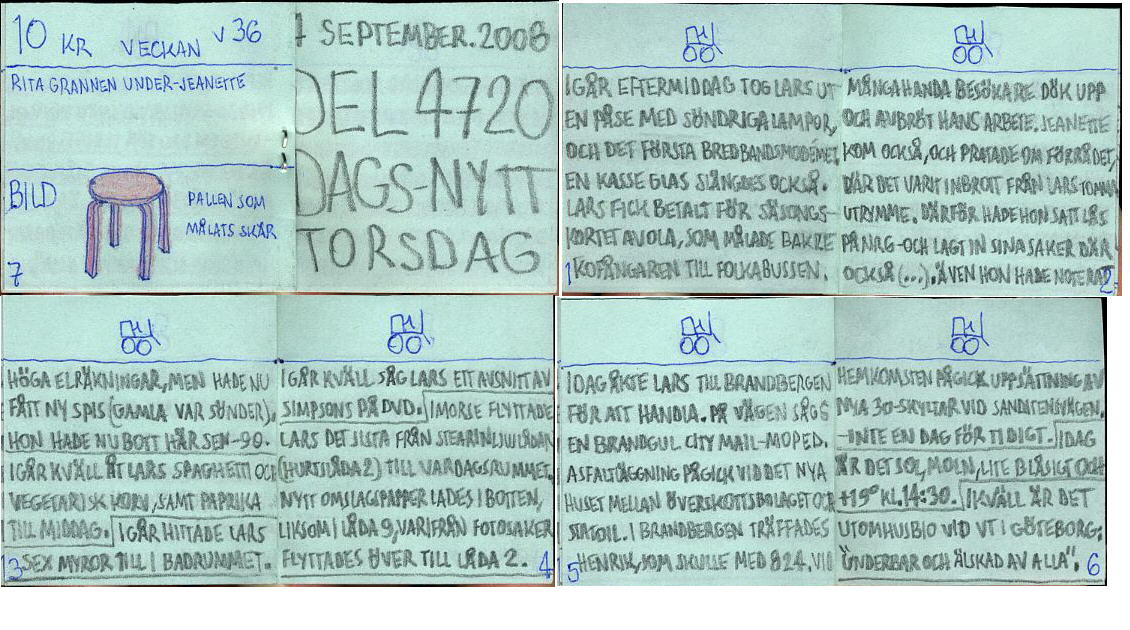 10 KR VECKAN V 36
RITA GRANNEN UNDER-JEANETTE
BILD
PALLEN SOM
MÅLATS SKÄR
7
SEPTEMBER.2008
DEL 4720
DAGS-NYTT
TORSDAG
IGÅR EFTERMIDDAG TOG LARS UT
EN PÅSE MED SÖNDRIGA LAMPOR,
OCH DET FÖRSTA BREDBANDSMODEMET,
EN KASSE GLAS SLÄNGDES OCKSÅ.
LARS FICK BETALT FÖR SÄSONGS-
KORTET AV OLA, SOM MÅLADE BAKRE
KOFÅNGAREN TILL FOLKABUSSEN.
1
MÅNGAHANDA BESÖKARE DÖK UPP
OCH AVBRÖT HANS ARBETE. JEANETTE
KOM OCKSÅ, OCH PRATADE OM FÖRRÅDET,
DÄR DET VARIT INBROTT FRÅN LARS TOMMA
UTRYMME. DÄRFÖR HADE HON SATT LÅS
PÅ NÅG-OCH LAGT IN SINA SAKER DÄR
OCKSÅ (...). ÄVEN HON HADE NOTERAT
2
HÖGA ELRÄKNINGAR, MEN HADE NU
FÅTT NY SPIS (GAMLA VAR SÖNDER).
HON HADE NU BOTT HÄR SEN -90.
IGÅR KVÄLL ÅT LARS SPAGHETTI OCH
VEGETARISK KORV, SAMT PAPRIKA
TILL MIDDAG. IGÅR HITTADE LARS
SEX MYROR TILL I BADRUMMET.
3
IGÅR KVÄLL SÅG LARS ETT AVSNITT AV
SIMPSONS PÅ DVD. IMORSE FLYTTADE
LARS DET SISTA FRÅN STEARINLJUSLÅDAN
(HURTSLÅDA 2) TILL VARDAGSRUMMET,
NYTT OMSLAGSPAPPER LADES I BOTTEN,
LIKSOM I LÅDA 9, VARIFRÅN FOTOSAKER
FLYTTADES ÖVER TILL LÅDA 2.
4
IDAG ÅKTE LARS TILL BRANDBERGEN
FÖR ATT HANDLA. PÅ VÄGEN SÅGS
EN BRANDGUL CITY MAIL-MOPED.
ASFALTLÄGGNING PÅGICK VID DET NYA
HUSET MELLAN ÖVERSKOTTSBOLAGET OCH
STATOIL. I BRANDBERGEN TRÄFFADES
HENRIK, SOM SKULLE MED 824. VID
5
HEMKOMSTEN PÅGICK UPPSÄTTNING AV
NYA 30-SKYLTAR VID SANDSTENSVÄGEN.
-INTE EN DAG FÖR TIDIGT. IDAG
ÄR DET SOL, MOLN, LITE BLÅSIGT OCH
+19° KL.14:30. IKVÄLL ÄR DET
UTOMHUSBIO VID VT I GÖTEBORG:
"UNDERBAR OCH ÄLSKAD AV ALLA".
6